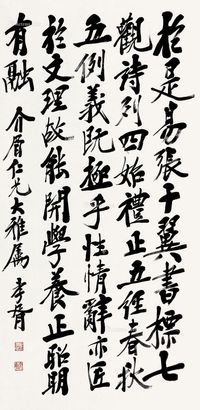 於是易張十翼書標七
觀詩列四始禮正五經春秋
五例義既極乎性情辭亦匠
於文理故能開學養正昭明
有融
介眉仁兄大雅屬